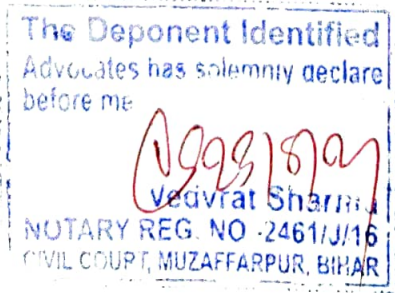 The Deponent Identified
Advocates has solemnly declare
before me
Vedvrat Sharma
NOTARY REG. NO -2461/J/16
CIVIL COURT, MUZAFFARPUR, BIHAR